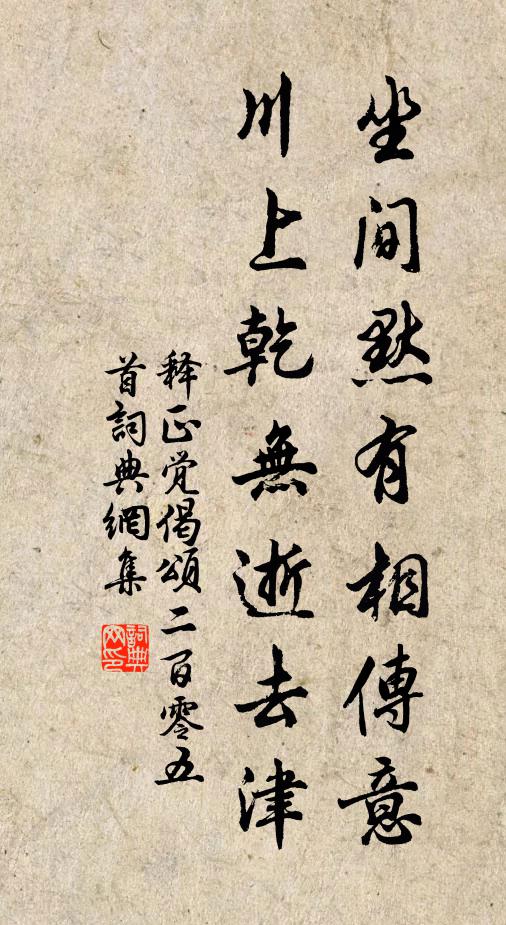 坐間默有相傳意
川上乾無逝去津
释正觉偈頌二百零五
首詞典網集
詞典网印